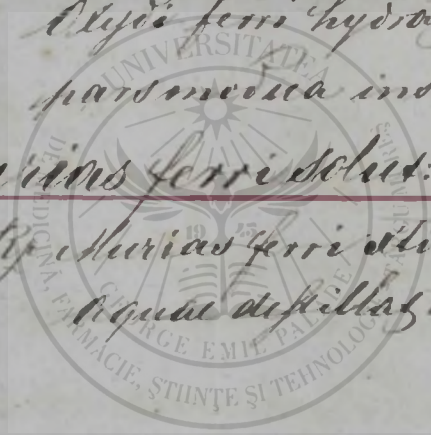 Oxydi ferri hydro
pars media ins
rias ferri solut:
Rp Murias ferri
aquae destillat
UNIVERSITATEA DE MEDICINĂ, FARMACIE, ȘTIINȚE ȘI TEHNOLOGIE
GEORGE EMIL PALADE
1945